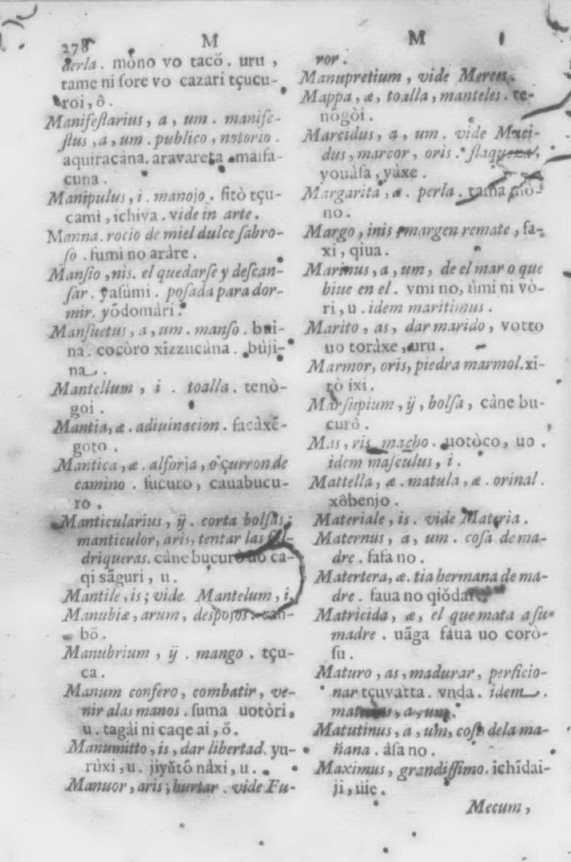 278
M
derla. mòno vo tacŏ. uru,
rame ni sore vo cazari tçucu-
roi, ô.
Manifestarius, a, um. manife-
stus, a, um. publico, notorio.
aquiracána. aravareta
cuna.
Manipulus, i. manojo. fitò tçu-
cami, ichiva. vide in arte.
Manna. rocio de miel dulce sabro-
so. fumi no aràre.
Mansio, nis. el quedarse y descan-
sar. yasùmi. posada para dor-
mir. yŏdomàri.
Mansuetus, a, um. manso.
na. cocòro xizzucàna. bùji-
na.
Mantellum, i. toalla. tenò-
goi.
Mantia, æ. adiuinacion. facàxĕ-
goto.
Mantica, æ. alforja, o çurron de
camino. fucuro, cauabucu-
ro,
Manticularius, ÿ. corta bolsas;
manticulor, aris, tentar las
driqueras. càne bucuro uo ca-
qi sãguri, u.
Mantile, is; vide Mantelum, i,
Manubiæ, arum, despojos.
bŏ.
Manubrium, ÿ. mango. tçu-
ca.
Manum consero, combatir, ve-
nir alas manos. suma uotòri,
u. tagài ni caqe ai, ŏ.
Manumitto, is, dar libertad. yu-
rùxi, u. jiyŭtŏ nàxi, u.
Manuor, aris; hurtar. vide Fu-
M
ror.
Manupretium, vide
Mappa, æ, toalla, manteles. te-
nògòi.
Marcidus, a, um. vide
dus, marcor, oris. flaqueza,
youàsa, yáxe.
Margarita, æ. perla. tama
no.
Margo, inis margen remate, fa-
xi, qiua.
Marinus, a, um, de el mar o que
biue en el. vmi no, ùmi ni vò-
ri, u. idem maritimus.
Marito, as, dar marido, votto
uo toràxe, uru.
Marmor, oris, piedra marmol. xi-
rò ixi.
Marsupium, ÿ, bolsa, càne bu-
curô.
Mas, ris macho. uotòco, uo.
idem masculus, i.
Mattella, æ. matula, æ. orinal.
xôbenjo.
Materiale, is. vide Materia.
Maternus, a, um. cosa de ma-
dre. fafa no.
Matertera, æ. tia hermana de ma-
dre. faua no
Matricida, æ, el que mata a su
madre. uãga fáua uo corò-
su.
Maturo, as, madurar, perficio-
nar tçuvatta. vnda. idem
Matutinus, a, um, cosa dela ma-
ñana. àsa no.
Maximus, grandissimo. ichidai-
ji,
Mecum,